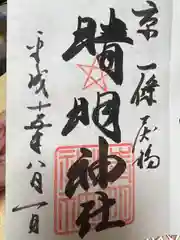 京一條戻橋
晴明神社
平成十五年八月一日